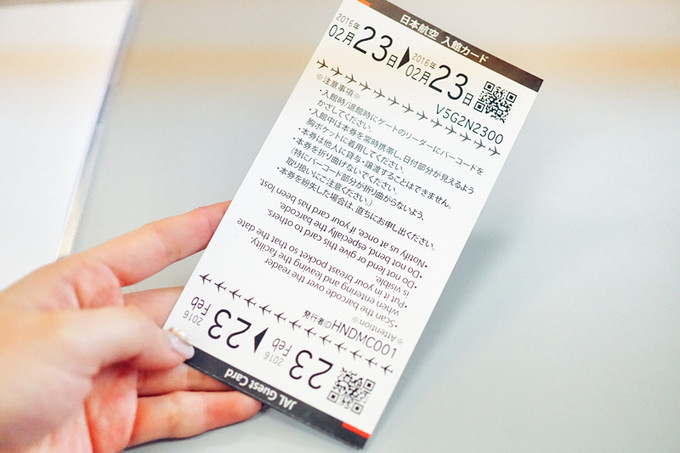 日本航空 入館カード
2016年 02月23日 ▶ 2016年 02月23日
V5G2N2300
※注意事項※
・入館時/退館時にゲートのリーダーにバーコードを
かざしてください。
・入館中は本券を常時携帯し、日付部分が見えるよう
胸ポケットに着用してください。
・本券は他人に貸与・譲渡することはできません。
・本券を折り曲げないでください。
(特にバーコード部分が折り曲がらないよう、
取り扱いにご注意ください。)
・本券を紛失した場合は、直ちにお申し出ください。
JAL Guest Card
2016 Feb 23 ▶ 2016 Feb 23
発行者ID HNDMC001
※Attention※
・Scan the barcode over the reader
when entering and leaving the facility.
・Put it in your breast pocket so that the date
is visible.
・Do not lend or give this card to others.
・Do not bend, especially the barcode.
・Notify us at once, if your card has been lost.